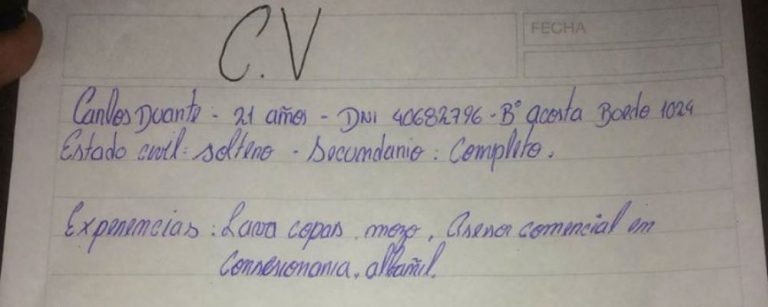 C.V
FECHA
Carlos Duarte - 21 años - DNI 40682796 - B° Acosta Boedo 1024
Estado civil: Soltero - Secundario: Completo.
Experiencias: Lava copas, mozo, Asesor comercial en
Consesionaria, albañil.